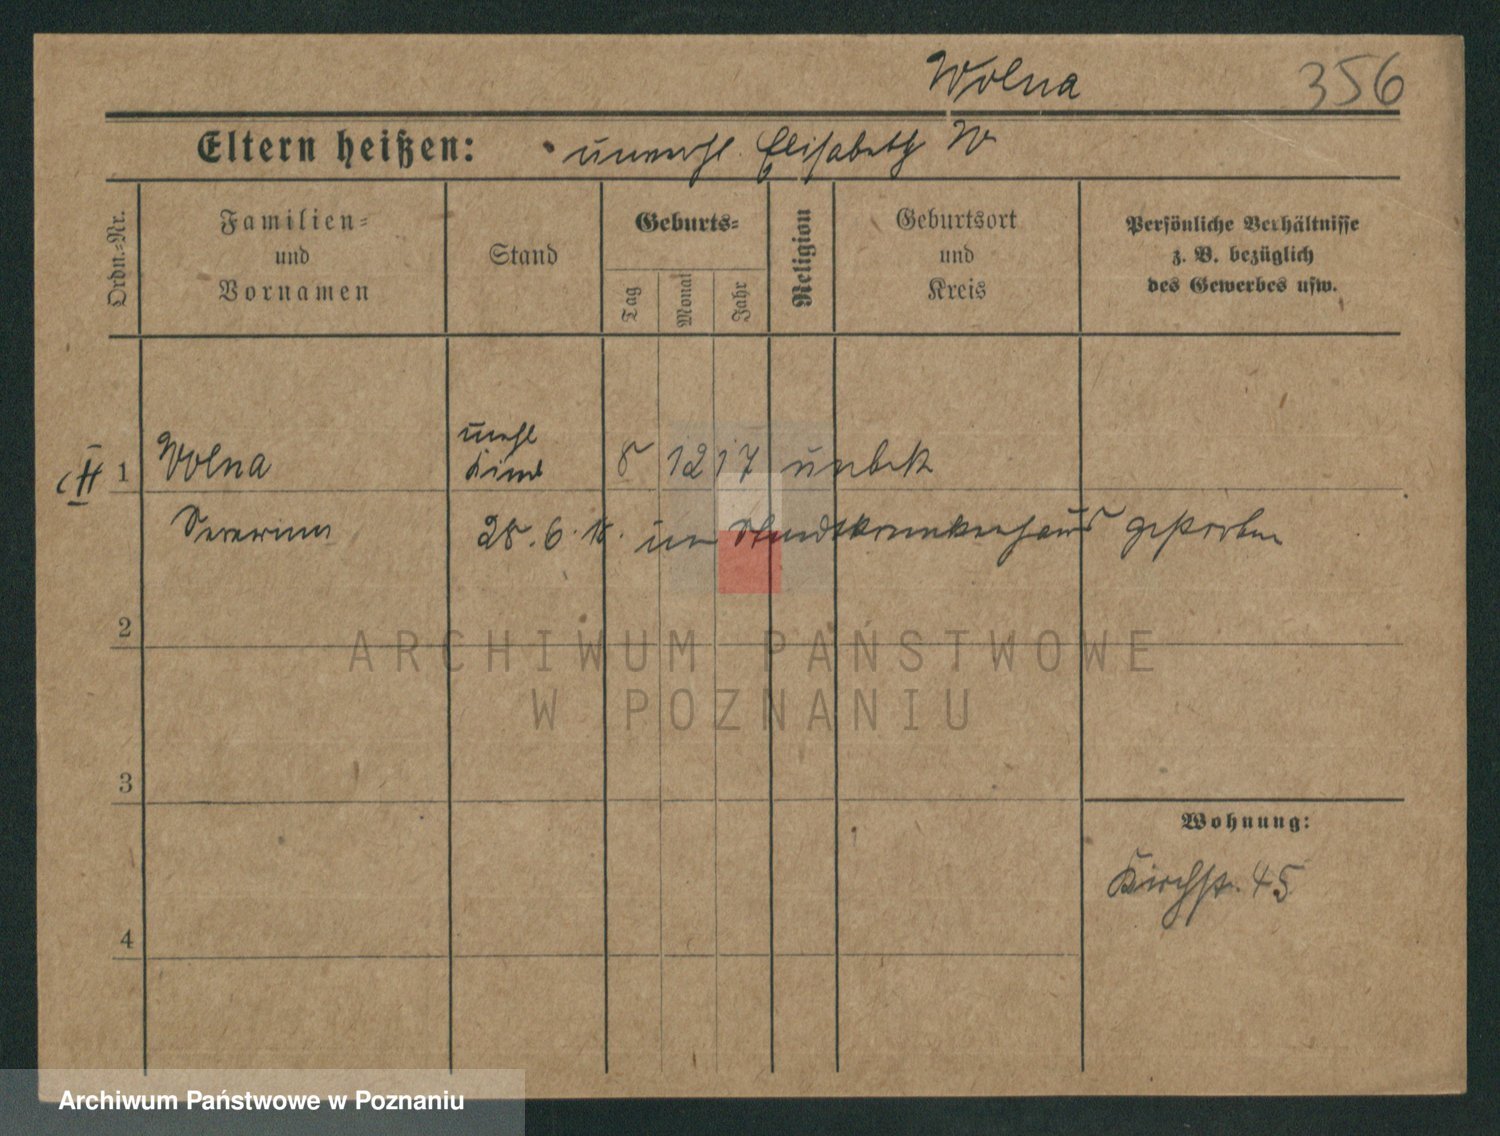 Wolna 356
Eltern heißen: unverh. Elisabeth W
Ordn.-Nr.
Familien-
und
Vornamen
Stand
Geburts-
Tag
Monat
Jahr
Religion
Geburtsort
und
Kreis
Persönliche Verhältnisse
z. B. bezüglich
des Gewerbes usw.
unehl
1 Wolna Kind 8 12 17 unbek
28. 6. 18. im Stadtkrankenhaus gestorben
2
3
Wohnung:
Kirchstr. 45
4
ARCHIWUM PAŃSTWOWE
W POZNANIU
Archiwum Państwowe w Poznaniu